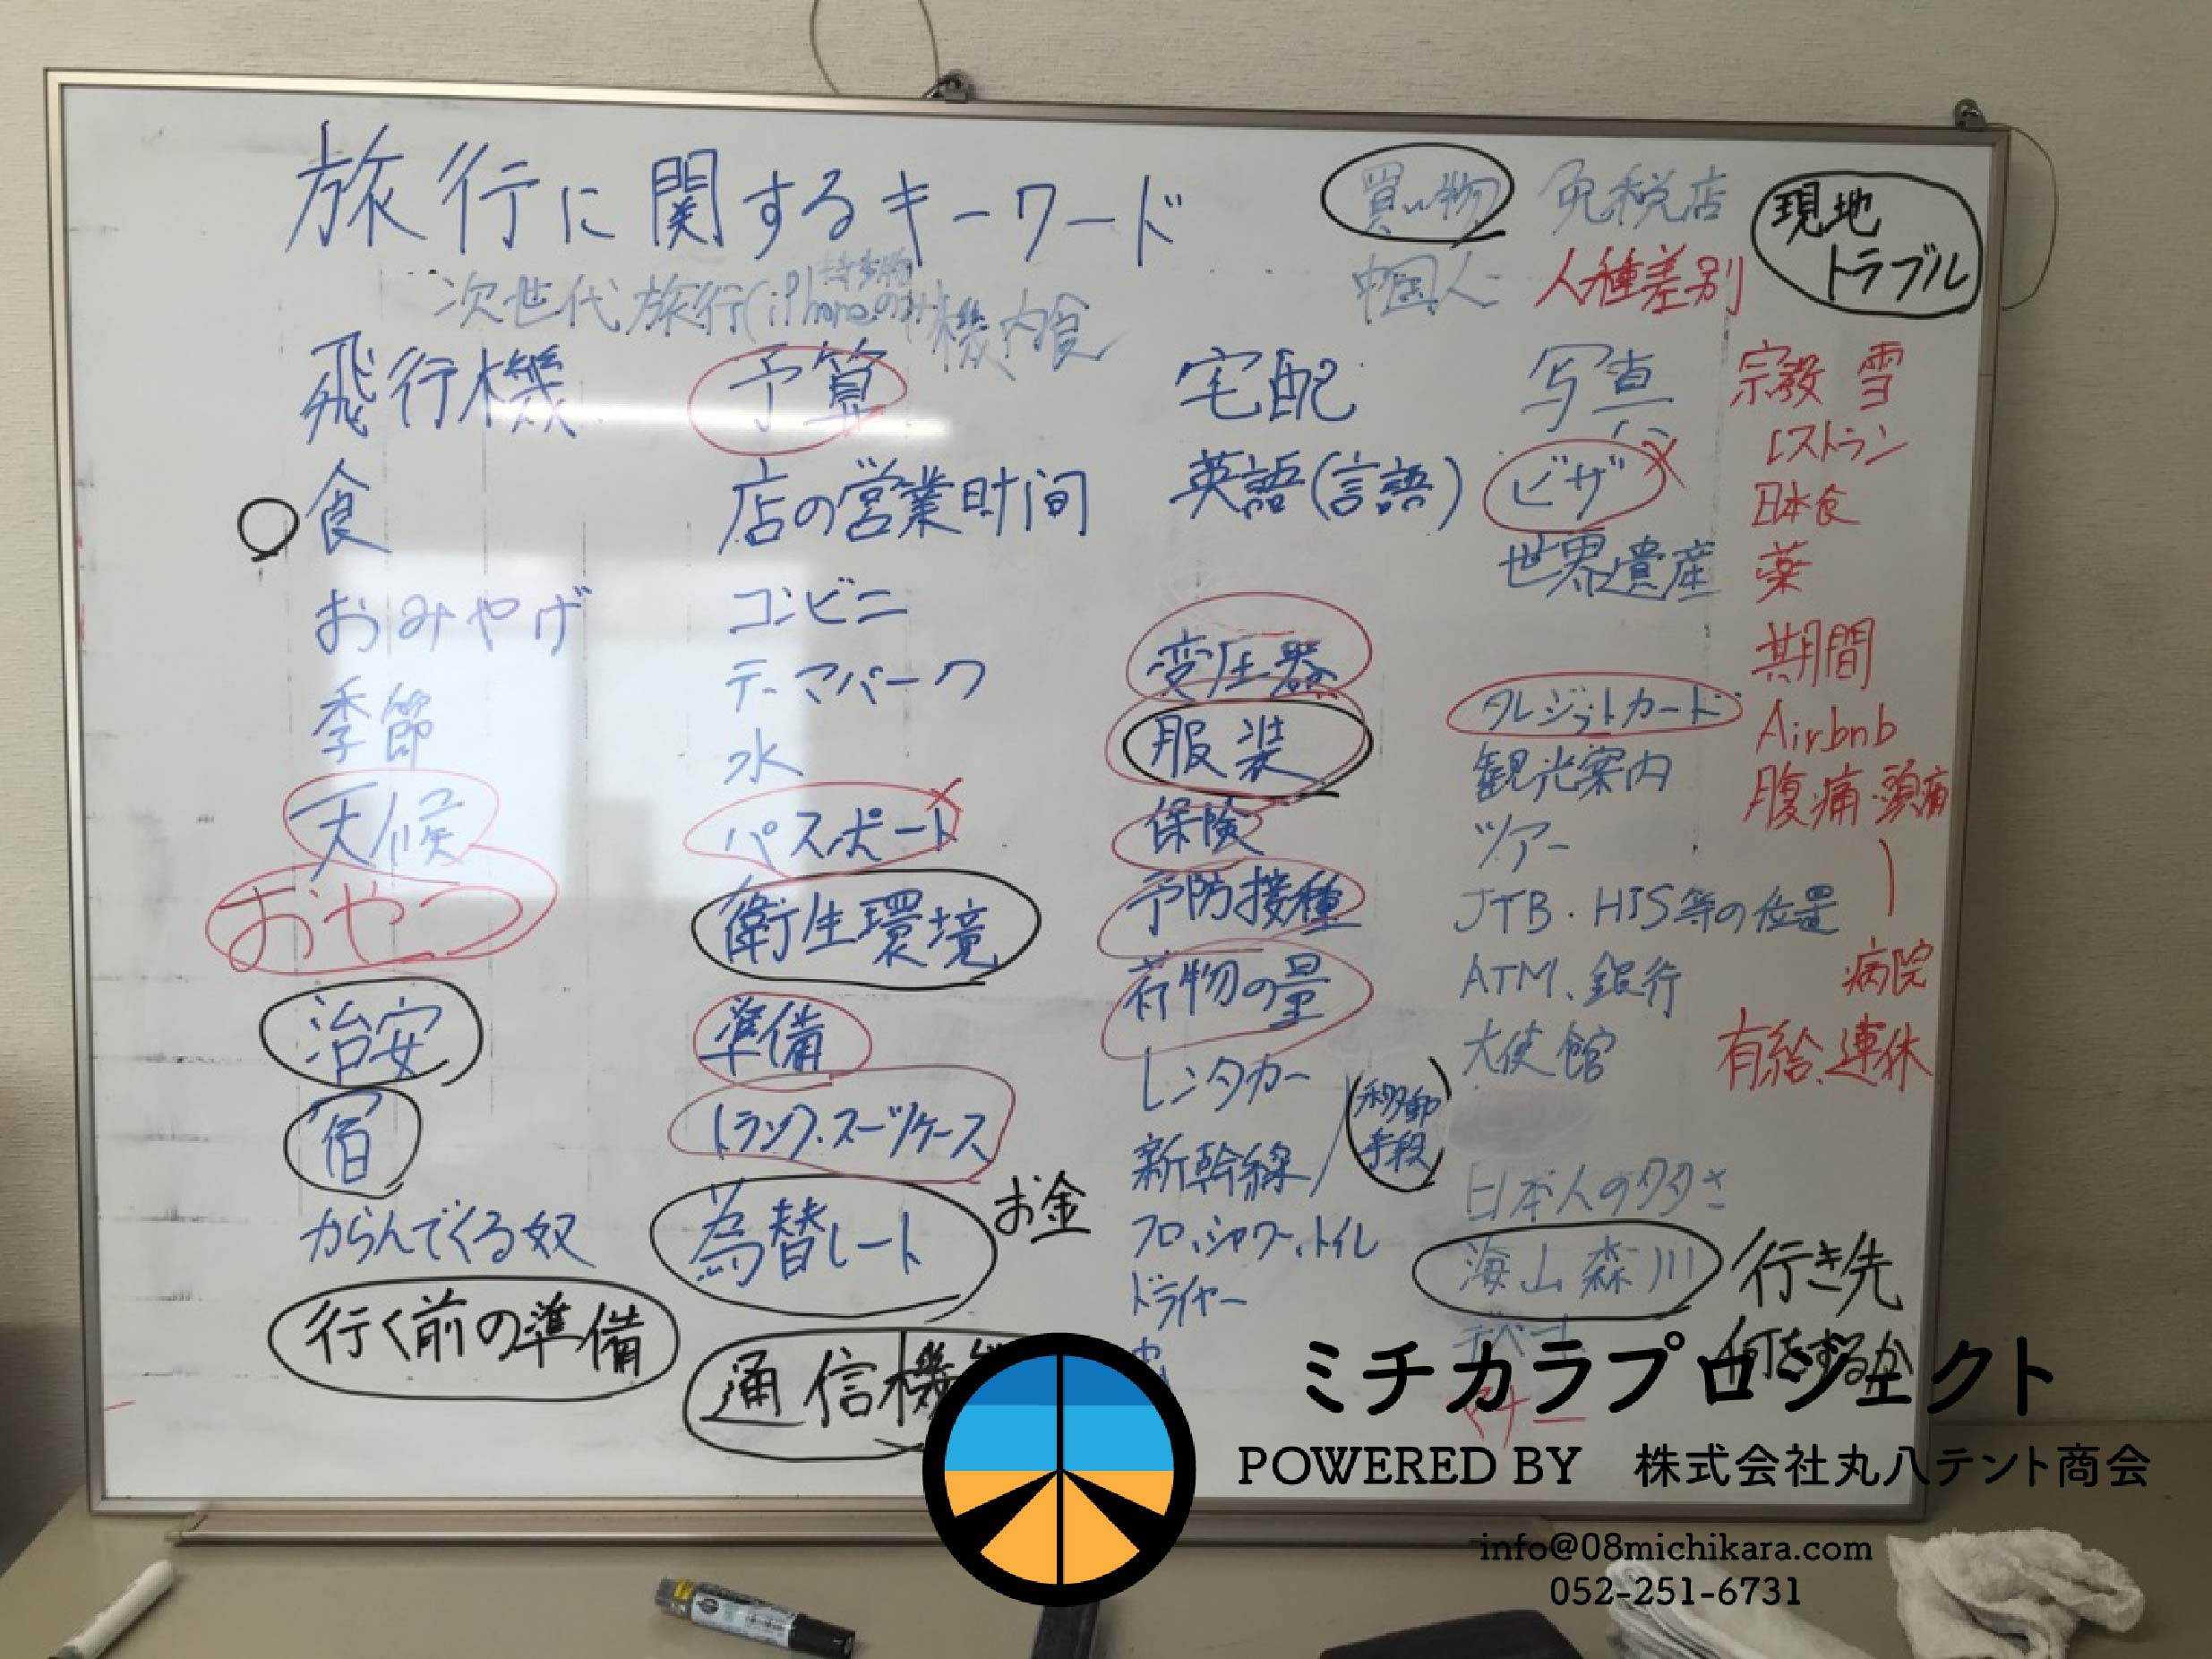 旅行に関するキーワード
買い物 免税店
現地
トラブル
中国人 人種差別
次世代旅行(iPhoneのみ
機内食
飛行機
食
おみやげ
季節
天候
おやつ
治安
宿
からんでくる奴
行く前の準備
予算
店の営業時間
コンビニ
テーマパーク
水
パスポート
衛生環境
準備
トランク・スーツケース
為替レート お金
通信機
宅配
英語(言語)
変圧器
服装
保険
予防接種
荷物の量
レンタカー
新幹線
移動
手段
フロ、シャワー、トイレ
ドライヤー
写真
ビザ
世界遺産
クレジットカード
観光案内
ツアー
JTB・HIS等の位置
ATM、銀行
大使館
日本人のウケ
海山森川
行き先
何をするか
マナー
宗教 雪
レストラン
日本食
薬
期間
Airbnb
腹痛・頭痛
病院
有給、連休
ミチカラプロジェクト
POWERED BY 株式会社丸八テント商会
info@08michikara.com
052-251-6731